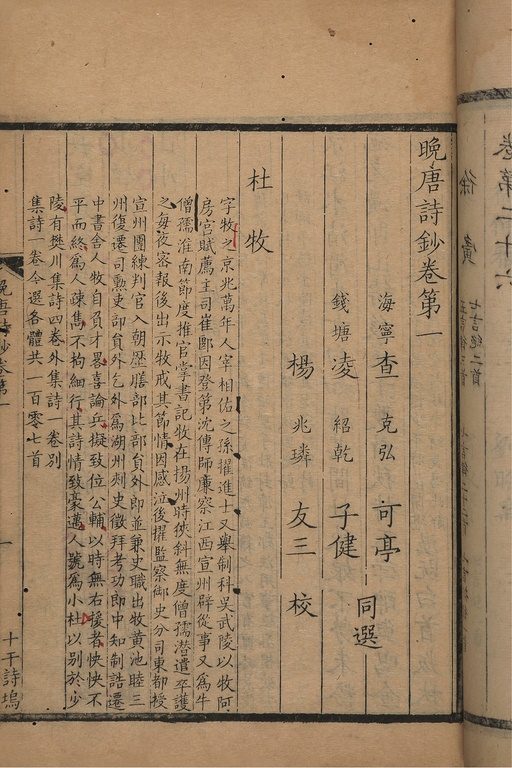 卷第二十六
徐寅
晚唐詩鈔卷第一
海寧查克弘可亭
錢塘凌紹乾子健同選
楊兆璘友三校
杜牧
字牧之京兆萬年人宰相佑之孫擢進士又舉制科吳武陵以牧阿
房宮賦薦主司崔郾因登第沈傳師廉察江西宣州辟從事又為牛
僧孺淮南節度推官掌書記牧在揚州時狹斜無度僧孺潛遣卒護
之每夜密報後出示牧戒其節情因感泣後擢監察御史分司東都授
宣州團練判官入朝歷膳部比部員外郎並兼史職出牧黃池睦三
州復遷司勲吏部員外乞外爲湖州刺史徵拜考功郎中知制誥遷
中書舍人牧自負才畧喜論兵擬致位公輔以時無右援者怏怏不
平而終爲人疎雋不拘細行其詩情致豪邁人號爲小杜以别於少
陵有樊川集詩四卷外集詩一卷别
集詩一卷今選各體共一百零七首
晚唐詩鈔
卷第一
一
十干詩塢